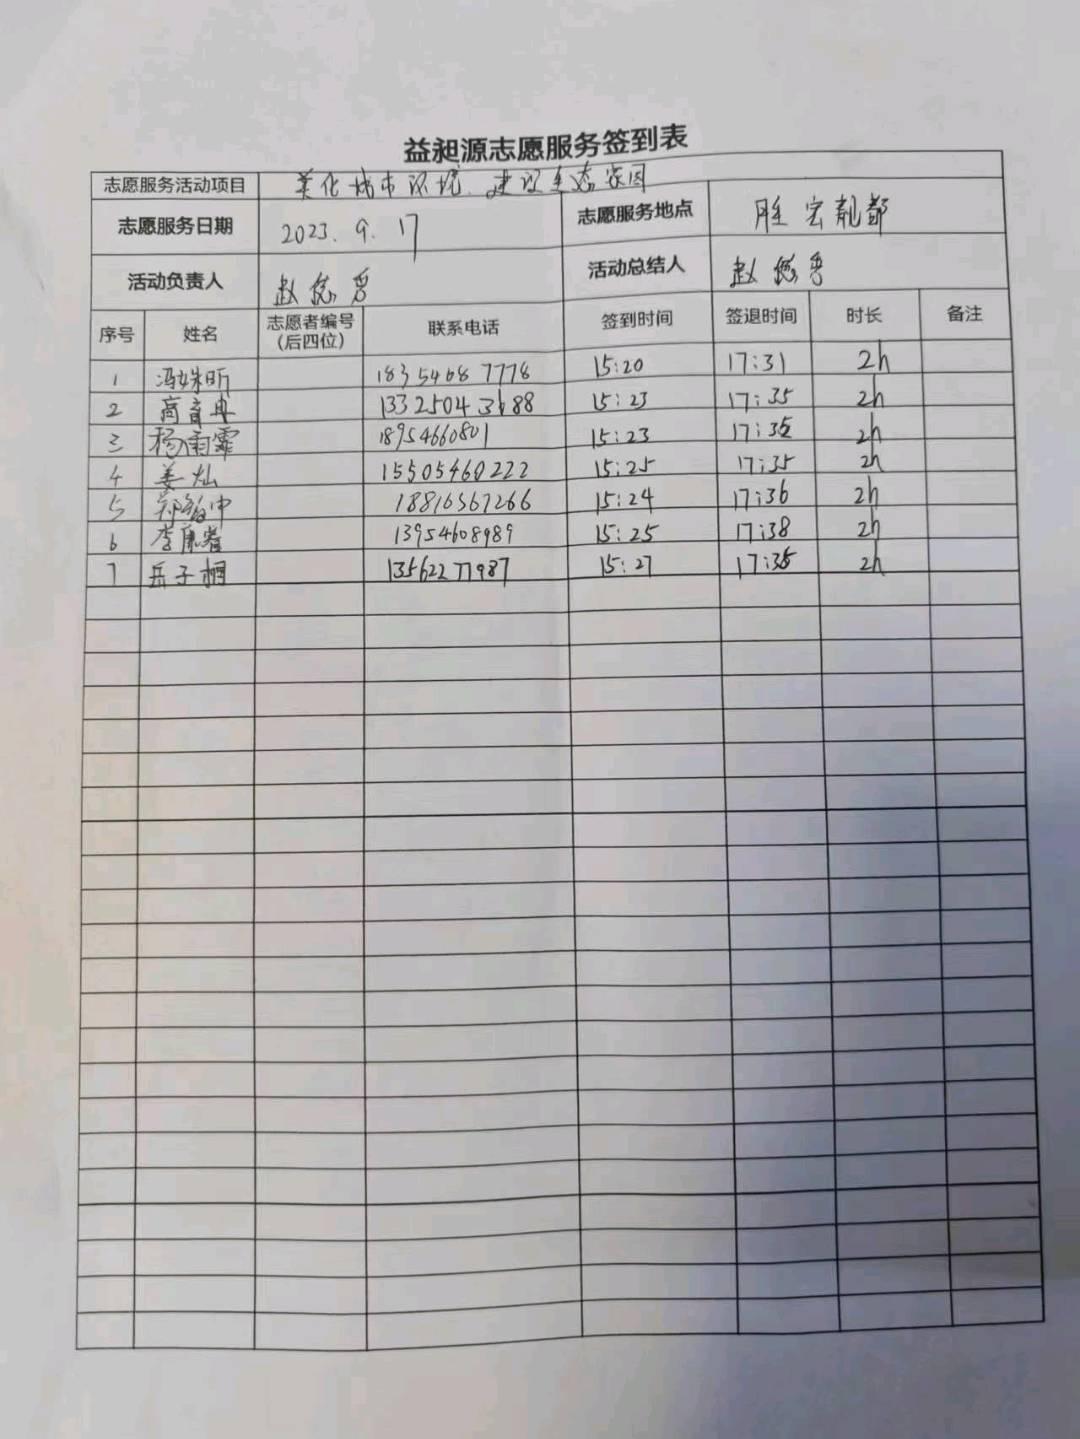 益昶源志愿服务签到表
志愿服务活动项目 美化城市环境 建设生态家园
志愿服务日期 2023. 9. 17 志愿服务地点 胜宏靓都
活动负责人 赵 活动总结人 赵
序号 姓名 志愿者编号（后四位） 联系电话 签到时间 签退时间 时长 备注
1 冯姝昕 1835468 7778 15:20 17:31 2h
2 高育冉 13325043688 15:23 17:35 2h
3 杨雨霏 18954660801 15:23 17:35 2h
4 姜灿 15505460222 15:25 17:35 2h
5 18816567266 15:24 17:36 2h
6 李康睿 13954608989 15:25 17:38 2h
7 岳子桐 13562277987 15:27 17:35 2h